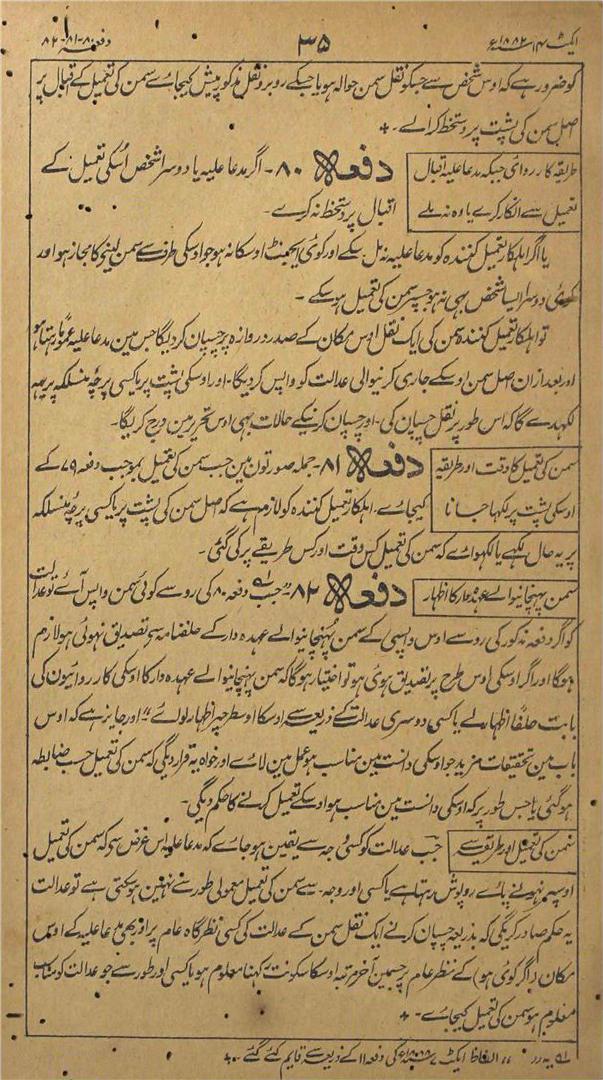 ایکٹ ۱۴ سنہ ۱۸۸۲ء
۳۵
دفعہ ۸۰-۸۱-۸۲
کو ضرور ہے کہ اوس شخص سے جسکو نقل سمن حوالہ ہو یا جسکے روبرو نقل مذکور پیش کیجاے سمن کی تعمیل کے اقبال پر
اصل سمن کی پشت پر دستخط کرالے۔
طریقہ کارروائی جبکہ مدعا علیہ اقبال
تعمیل سے انکار کرے یا وہ نہ ملے
دفعہ ۸۰۔ اگر مدعا علیہ یا دوسرا شخص اسکی تعمیل کے
اقبال پر دستخط نہ کرے۔
یا اگر اہلکار تعمیل کنندہ کو مدعا علیہ نہ مل سکے اور کوئی ایجنٹ اوسکا نہ ہو جو اوسکی طرف سے سمن لینے کا مجاز ہو اور
کوئی دوسرا ایسا شخص بھی نہ ہو جسپر سمن کی تعمیل ہو سکے۔
تو اہلکار تعمیل کنندہ سمن کی ایک نقل اوس مکان کے صدر دروازہ پر چسپان کر دیگا جس مین مدعا علیہ عموماً رہتا ہو
اور بعد ازان اصل سمن اوسکے جاری کرنیوالی عدالت کو واپس کر دیگا۔ اور اوسکی پشت پر یا کسی پرچہ منسلکہ پر یہہ
لکھدے گا کہ اس طور پر نقل چسپان کی۔ اور چسپان کرنیکے حالات بھی اوس تحریر مین درج کریگا۔
سمن کی تعمیل کا وقت اور طریقہ
اوسکی پشت پر لکھا جانا
دفعہ ۸۱۔ جملہ صورتون مین جب سمن کی تعمیل بموجب دفعہ ۷۹ کے
کیجاے۔ اہلکار تعمیل کنندہ کو لازم ہے کہ اصل سمن کی پشت پر یا کسی پرچہ منسلکہ
پر یہ حال لکھے یا لکھواے کہ سمن کی تعمیل کس وقت اور کس طریقے پر کی گئی۔
سمن پہنچانیوالے عہدہ دار کا اظہار
دفعہ ۸۲۔ جب دفعہ ۸۰ کی رو سے کوئی سمن واپس آئے تو عدالت
کو اگر دفعہ مذکور کی رو سے اوس واپسی کے سمن پہنچانیوالے عہدہ دار کے حلفنامہ سے تصدیق نہوئی ہو لازم
ہوگا اور اگر اوسکی اوس طرح پر تصدیق ہوئی ہو تو اختیار ہوگا کہ سمن پہنچانیوالے عہدہ دار کا اوسکی کارروائیون کی
بابت حلفاً اظہار لے یا کسی دوسری عدالت کے ذریعہ سے اوسکا اوسطرحپر اظہار لوائے اور جایز ہے کہ اوس
باب مین تحقیقات مزید جو اوسکی دانست مین مناسب ہو عمل مین لاے اور خواہ یہ قرار دیگی کہ سمن کی تعمیل حسب ضابطہ
ہو گئی یا جس طور پر کہ اوسکی دانست مین مناسب ہو اوسکے تعمیل کرنے کا حکم دیگی۔
سمن کی تعمیل اور طریق سے
جب عدالت کو کسی وجہ سے یقین ہو جاے کہ مدعا علیہ اس غرض سے کہ سمن کی تعمیل
اوسپر نہونے پاے روپوش رہتا ہے یا کسی اور وجہ سے سمن کی تعمیل معمولی طور سے نہین ہو سکتی ہے تو عدالت
یہ حکم صادر کریگی کہ بذریعہ چسپان کرنے ایک نقل سمن کے عدالت کی کسی نظرگاہ عام پر اور نیز مدعا علیہ کے اوس
مکان (اگر کوئی ہو) کے منظر عام پر جسمین آخر مرتبہ اوسکا سکونت رکھنا معلوم ہو یا کسی اور طور سے جو عدالت کو مناسب
معلوم ہو سمن کی تعمیل کیجاے۔
یہ الفاظ ایکٹ ۷ سنہ ۱۸۸۸ء کی دفعہ ۱۱ کے ذریعہ سے قایم کئے گئے۔